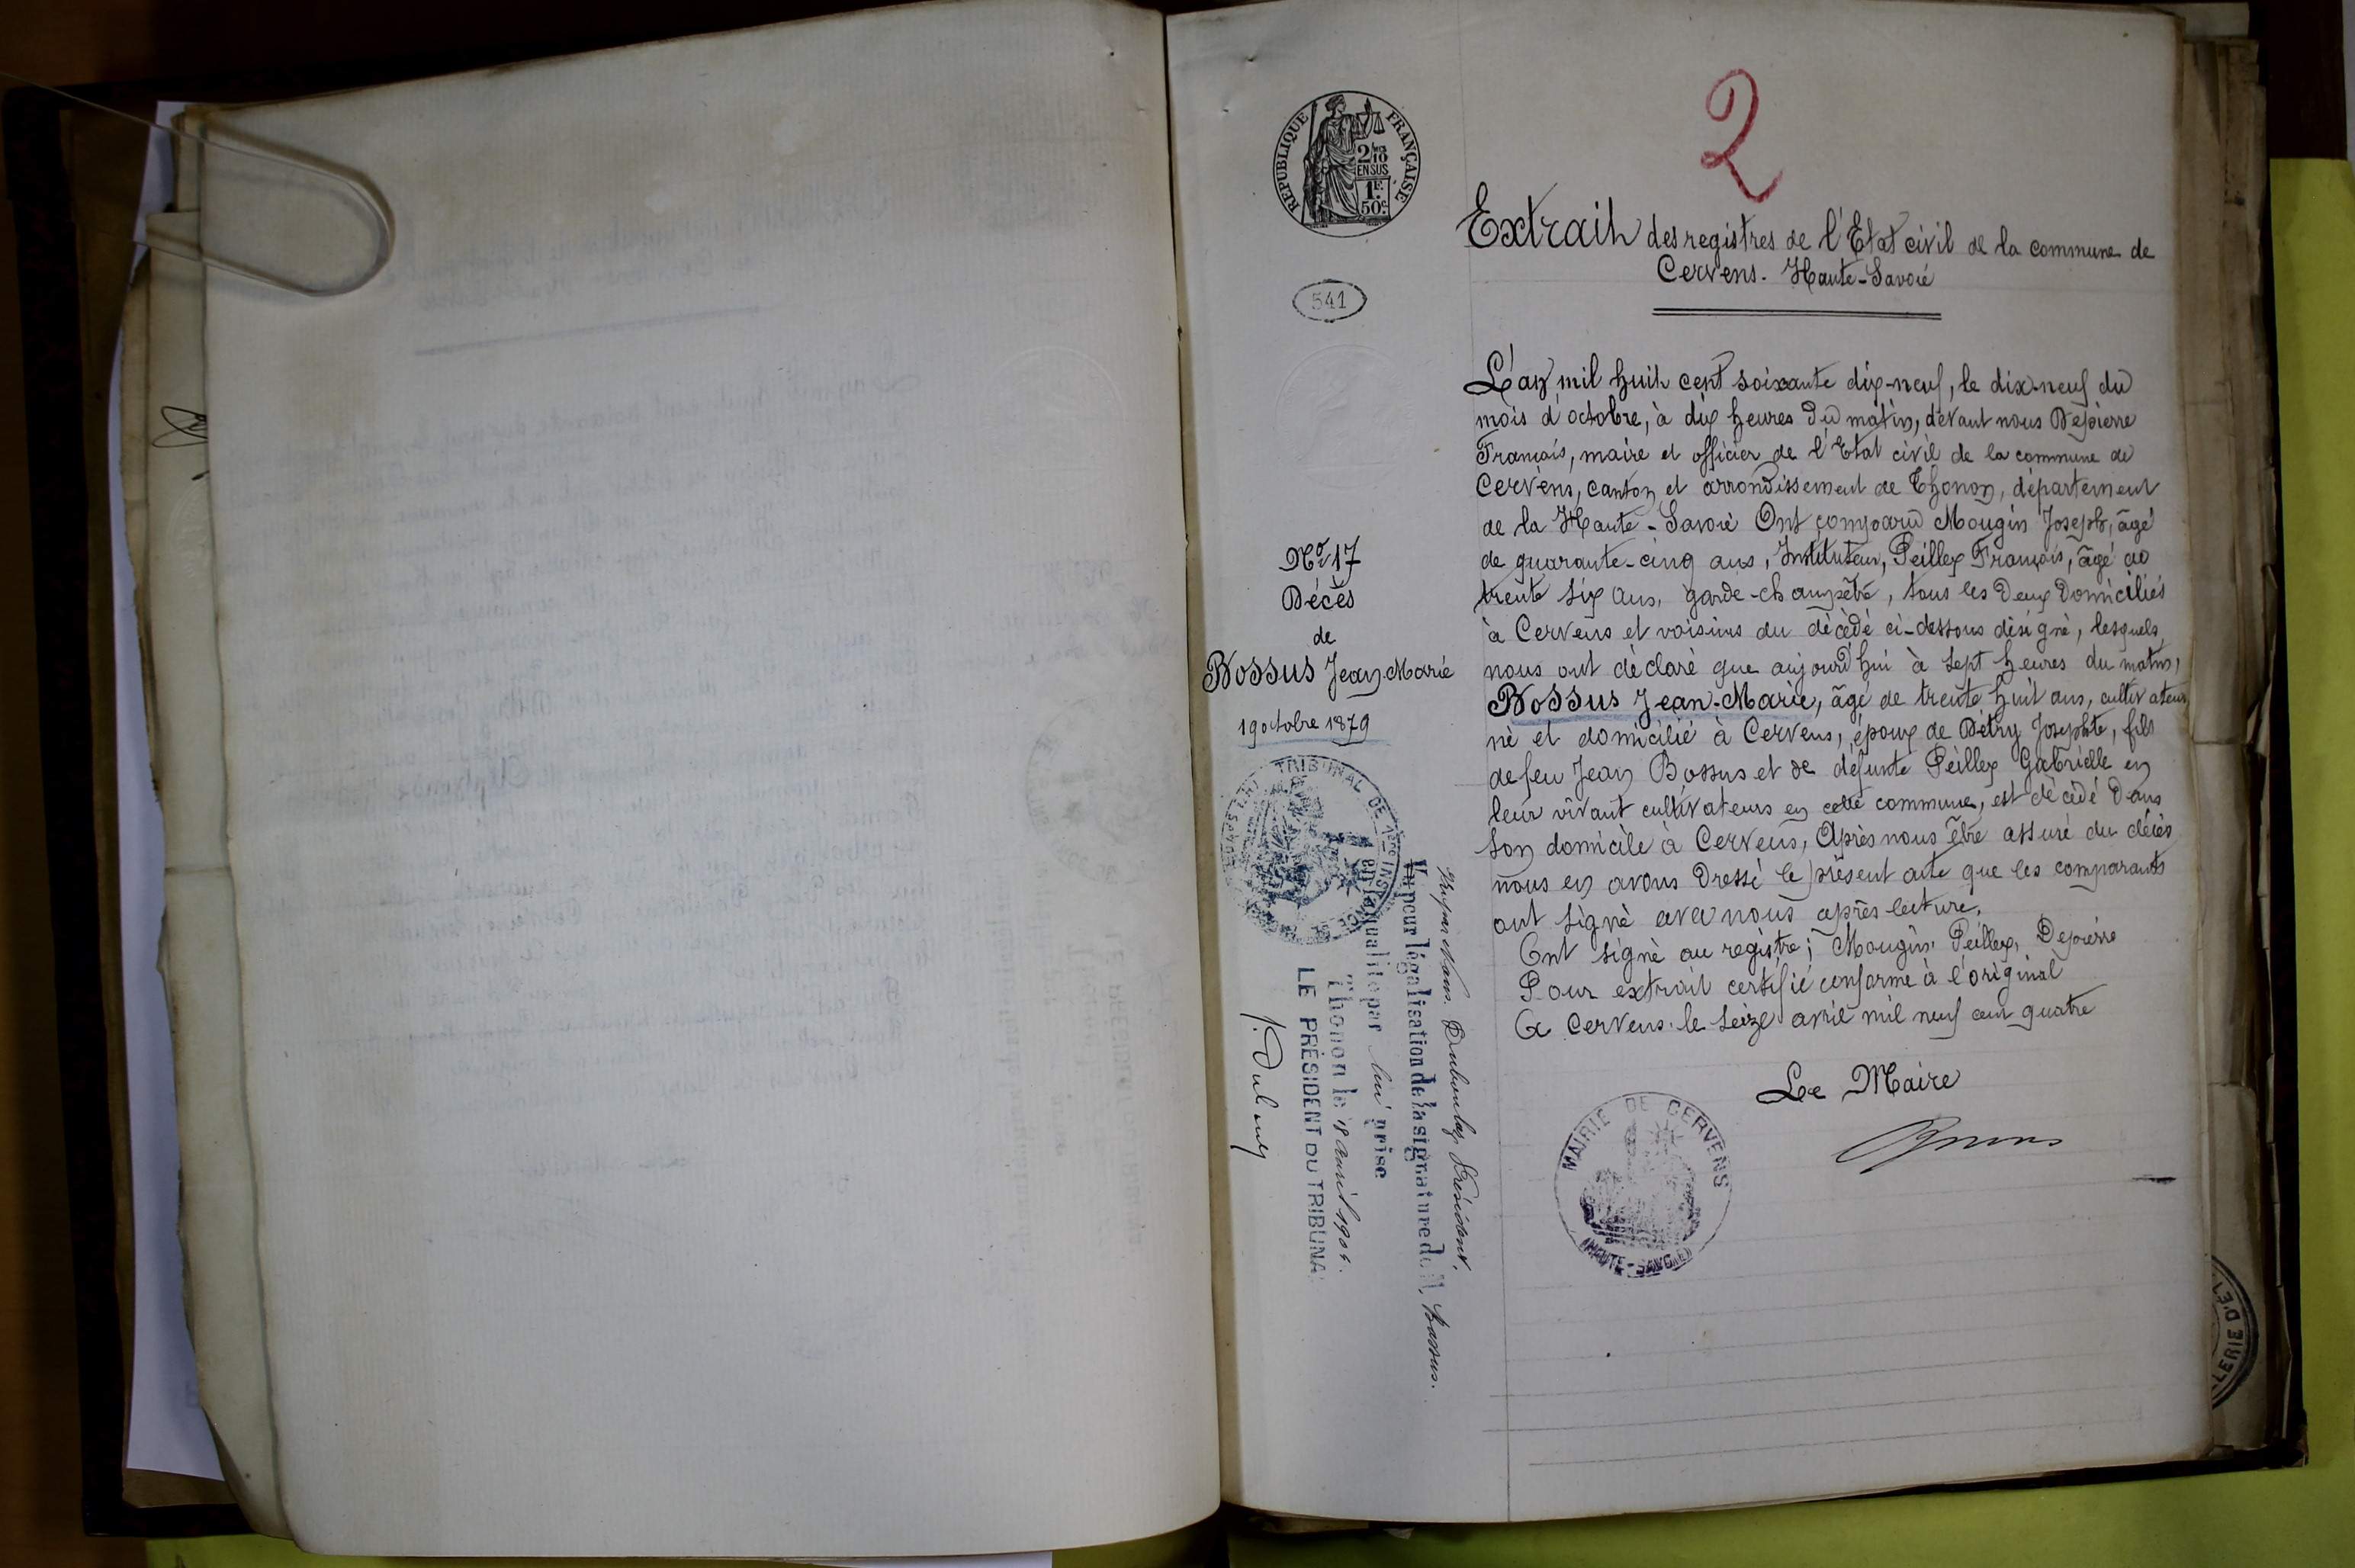 2
REPUBLIQUE FRANÇAISE
2/10
EN SUS
1F.
50c.
541
Extrait des registres de l'Etat civil de la commune de
Cervens. Haute-Savoie
L'an mil huit cent soixante dix-neuf, le dix-neuf du
mois d'octobre, à dix heures du matin, devant nous Dépierre
François, maire et officier de l'Etat civil de la commune de
Cervens, canton et arrondissement de Thonon, département
de la Haute-Savoie Ont comparu Mougin Joseph, âgé
de quarante-cinq ans, Instituteur, Peillex François, âgé de
trente six ans, garde-champêtre, tous les deux domiciliés
à Cervens et voisins du décédé ci-dessous désigné, lesquels
nous ont déclaré que aujourd'hui à sept heures du matin,
Bossus Jean-Marie, âgé de trente huit ans, cultivateur
né et domicilié à Cervens, époux de Détry Josephte, fils
de feu Jean Bossus et de défunte Peillex Gabrielle en
leur vivant cultivateurs en cette commune, est décédé dans
son domicile à Cervens, Après nous être assuré du décès
nous en avons dressé le présent acte que les comparants
ont signé avec nous après lecture.
Ont signé au registre; Mougin, Peillex, Depierre
Pour extrait certifié conforme à l'original
A Cervens le seize avril mil neuf cent quatre
Le Maire
MAIRIE DE CERVENS
(HAUTE-SAVOIE)
No 17
Décès
de
Bossus Jean-Marie
19 octobre 1879
TRIBUNAL DE 1ère INSTANCE
Vu par Nous. Président,
Vu pour légalisation de la signature de M. Bossus.
en la qualité par lui prise
Thonon le 18 avril 1904.
LE PRÉSIDENT DU TRIBUNAL
LERIE D'ÉT